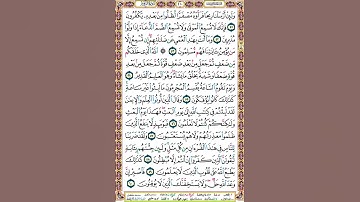 وَلَئِنْ أَرْسَلْنَا رِيحًا فَرَأَوْهُ مُصْفَرًّا لَّظَلُّوا۟ مِنۢ بَعْدِهِۦ يَكْفُرُونَ
۝ فَإِنَّكَ لَا تُسْمِعُ ٱلْمَوْتَىٰ وَلَا تُسْمِعُ ٱلصُّمَّ ٱلدُّعَآءَ إِذَا وَلَّوْا۟
مُدْبِرِينَ ۝ وَمَآ أَنتَ بِهَـٰدِ ٱلْعُمْىِ عَن ضَلَـٰلَتِهِمْ إِن تُسْمِعُ إِلَّا
مَن يُؤْمِنُ بِـَٔايَـٰتِنَا فَهُم مُّسْلِمُونَ ۝ ۞ ٱللَّهُ ٱلَّذِى خَلَقَكُم
مِّن ضَعْفٍ ثُمَّ جَعَلَ مِنۢ بَعْدِ ضَعْفٍ قُوَّةً ثُمَّ جَعَلَ مِنۢ بَعْدِ
قُوَّةٍ ضَعْفًا وَشَيْبَةً يَخْلُقُ مَا يَشَآءُ وَهُوَ ٱلْعَلِيمُ ٱلْقَدِيرُ ۝
وَيَوْمَ تَقُومُ ٱلسَّاعَةُ يُقْسِمُ ٱلْمُجْرِمُونَ مَا لَبِثُوا۟ غَيْرَ سَاعَةٍ
كَذَٰلِكَ كَانُوا۟ يُؤْفَكُونَ ۝ وَقَالَ ٱلَّذِينَ أُوتُوا۟ ٱلْعِلْمَ وَٱلْإِيمَـٰنَ
لَقَدْ لَبِثْتُمْ فِى كِتَـٰبِ ٱللَّهِ إِلَىٰ يَوْمِ ٱلْبَعْثِ فَهَـٰذَا يَوْمُ ٱلْبَعْثِ
وَلَـٰكِنَّكُمْ كُنتُمْ لَا تَعْلَمُونَ ۝ فَيَوْمَئِذٍ لَّا يَنفَعُ ٱلَّذِينَ
ظَلَمُوا۟ مَعْذِرَتُهُمْ وَلَا هُمْ يُسْتَعْتَبُونَ ۝ وَلَقَدْ ضَرَبْنَا
لِلنَّاسِ فِى هَـٰذَا ٱلْقُرْءَانِ مِن كُلِّ مَثَلٍ وَلَئِن جِئْتَهُم بِـَٔايَةٍ
لَّيَقُولَنَّ ٱلَّذِينَ كَفَرُوٓا۟ إِنْ أَنتُمْ إِلَّا مُبْطِلُونَ ۝ كَذَٰلِكَ
يَطْبَعُ ٱللَّهُ عَلَىٰ قُلُوبِ ٱلَّذِينَ لَا يَعْلَمُونَ ۝ فَٱصْبِرْ إِنَّ
وَعْدَ ٱللَّهِ حَقٌّ وَلَا يَسْتَخِفَّنَّكَ ٱلَّذِينَ لَا يُوقِنُونَ ۝